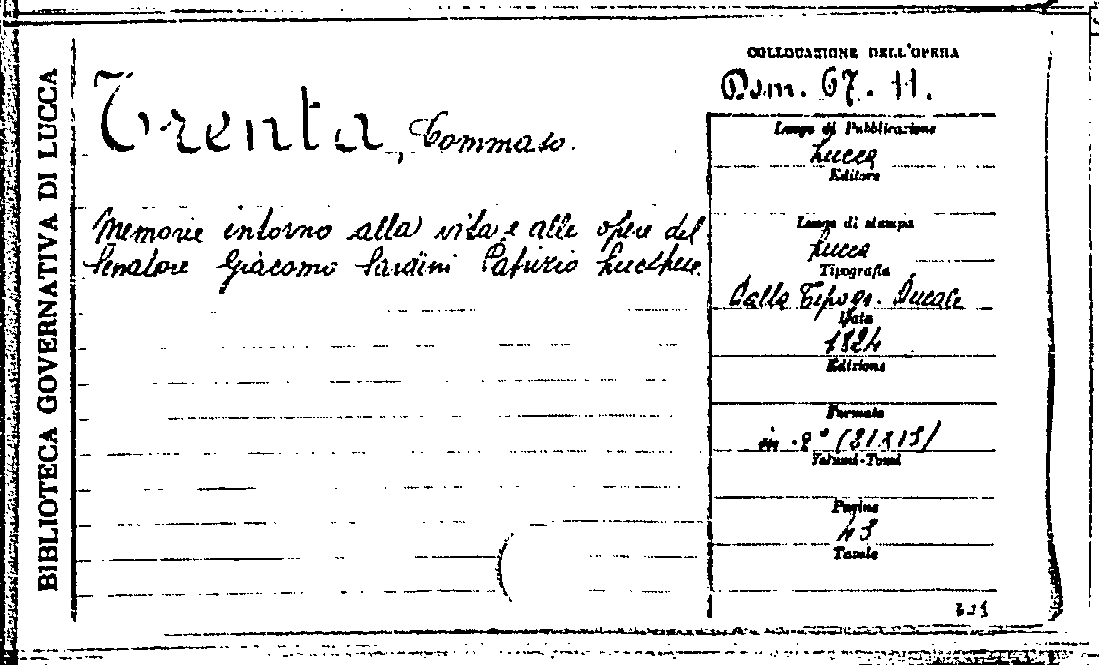 BIBLIOTECA GOVERNATIVA DI LUCCA
Trenta, Tommaso.
Memorie intorno alla vita e alle opere del
Senatore Giacomo Sardini Patrizio Lucchese.
COLLOCAZIONE DELL'OPERA
Dom. 67. 11.
Luogo di Pubblicazione
Lucca
Editore
Luogo di stampa
Lucca
Tipografia
Dalla Tipogr. Ducale
Data
1824
Edizione
Formato
in -8° (21x13)
Volumi-Tomi
Pagine
43
Tavole